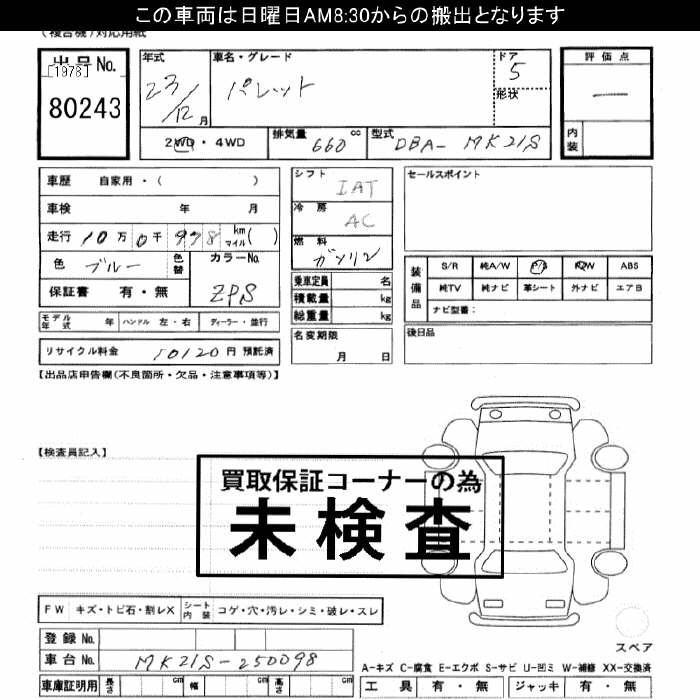 この車両は日曜日AM8:30からの搬出となります
(複合機)対応用紙
出品No.
[1978]
80243
年式
23/12月
車名・グレード
パレット
ドア
5
形状
評価点
—
内装
2WD・4WD
排気量 660 cc
型式 DBA- MK21S
車歴 自家用・( )
車検 年 月
走行 10万0千978 km マイル( )
色 ブルー 色替
カラーNo. ZPS
保証書 有・無
シフト IAT
冷房 AC
燃料 ガソリン
乗車定員 名
積載量 kg
総重量 kg
セールスポイント
装備品
S/R 純A/W P/S P/W ABS
純TV 純ナビ 革シート 外ナビ エアB
ナビ型番:
モデル年式 年 ハンドル 左・右 ディーラー・並行
名変期限 月 日
後日品
リサイクル料金 10120 円 預託済
【出品店申告欄(不良箇所・欠品・注意事項等)】
【検査員記入】
買取保証コーナーの為
未検査
FW キズ・トビ石・割レX シート内装 コゲ・穴・汚レ・シミ・破レ・スレ
スペア
登録No.
車台No. MK21S-250098
A-キズ C-腐食 E-エクボ S-サビ U-凹ミ W-補修 XX-交換済
車庫証明用 長さ cm 幅 cm 高さ cm
工具 有・無 ジャッキ 有・無